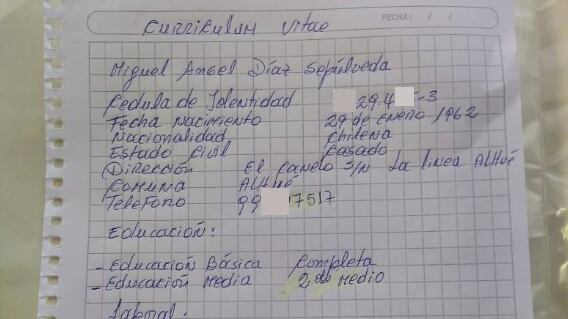 FECHA: / /
Curriculum Vitae
Miguel Angel Díaz Sepúlveda
Cedula de Identidad 29.4 -3
Fecha Nacimiento 29 de Enero 1962
Nacionalidad Chilena
Estado Civil Casado
Dirección El Canelo S/N La Linea Alhué
Comuna Alhué
Telefono 99 17517
Educación:
- Educación Básica Completa
- Educación Media 2do Medio
Laboral.